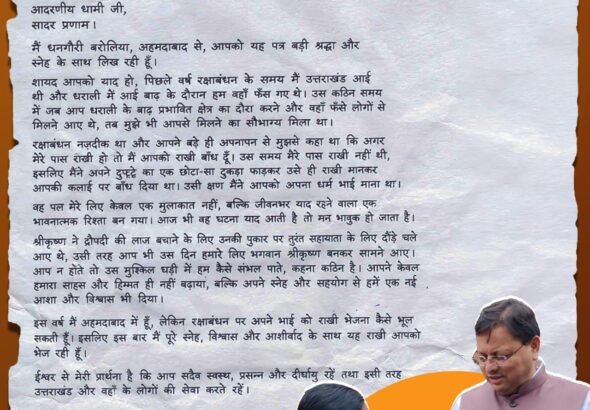 आदरणीय धामी जी,
सादर प्रणाम।
मैं धनगौरी बरोलिया, अहमदाबाद से, आपको यह पत्र बड़ी श्रद्धा और
स्नेह के साथ लिख रही हूँ।
शायद आपको याद हो, पिछले वर्ष रक्षाबंधन के समय मैं उत्तराखंड आई
थी और धराली में आई बाढ़ के दौरान हम वहाँ फँस गए थे। उस कठिन समय
में जब आप धराली के बाढ़ प्रभावित क्षेत्र का दौरा करने और वहाँ फँसे लोगों से
मिलने आए थे, तब मुझे भी आपसे मिलने का सौभाग्य मिला था।
रक्षाबंधन नज़दीक था और आपने बड़े ही अपनापन से मुझसे कहा था कि अगर
मेरे पास राखी हो तो मैं आपको राखी बाँध दूँ। उस समय मेरे पास राखी नहीं थी,
इसलिए मैंने अपने दुपट्टे का एक छोटा-सा टुकड़ा फाड़कर उसे ही राखी मानकर
आपकी कलाई पर बाँध दिया था। उसी क्षण मैंने आपको अपना धर्म भाई माना था।
वह पल मेरे लिए केवल एक मुलाकात नहीं, बल्कि जीवनभर याद रहने वाला एक
भावनात्मक रिश्ता बन गया। आज भी वह घटना याद आती है तो मन भावुक हो जाता है।
श्रीकृष्ण ने द्रौपदी की लाज बचाने के लिए उनकी पुकार पर तुरंत सहायता के लिए दौड़े चले
आए थे, उसी तरह आप भी उस दिन हमारे लिए भगवान श्रीकृष्ण बनकर सामने आए।
आप न होते तो उस मुश्किल घड़ी में हम कैसे संभल पाते, कहना कठिन है। आपने केवल
हमारा साहस और हिम्मत ही नहीं बढ़ाया, बल्कि अपने स्नेह और सहयोग से हमें एक नई
आशा और विश्वास भी दिया।
इस वर्ष मैं अहमदाबाद में हूँ, लेकिन रक्षाबंधन पर अपने भाई को राखी भेजना कैसे भूल
सकती हूँ। इसलिए इस बार मैं पूरे स्नेह, विश्वास और आशीर्वाद के साथ यह राखी आपको
भेज रही हूँ।
ईश्वर से मेरी प्रार्थना है कि आप सदैव स्वस्थ, प्रसन्न और दीर्घायु रहें तथा इसी तरह
उत्तराखंड और वहाँ के लोगों की सेवा करते रहें।